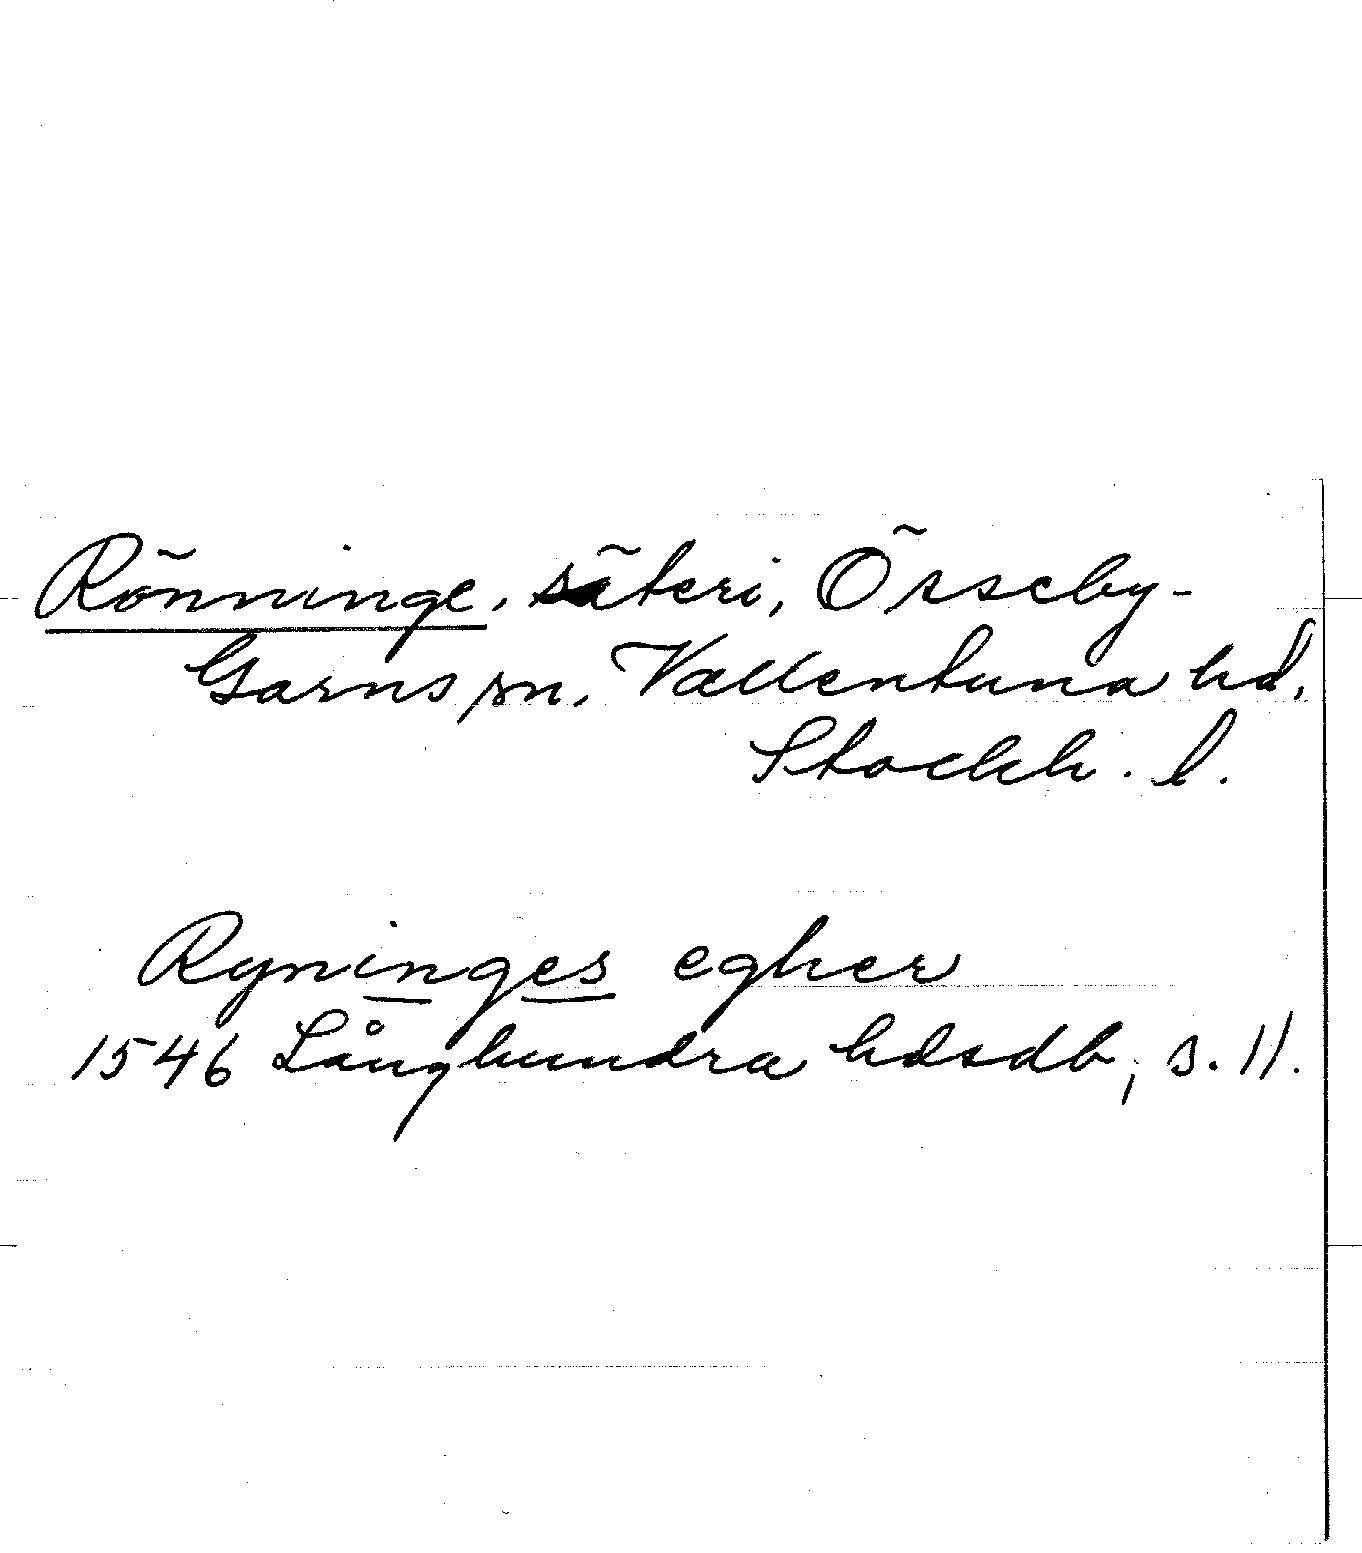 Rönninge, säteri, Össeby-
Garns sn, Vallentuna hd,
Stockh. l.
Ryninges egher
1546 Långhundra hdsdb, s. 11.